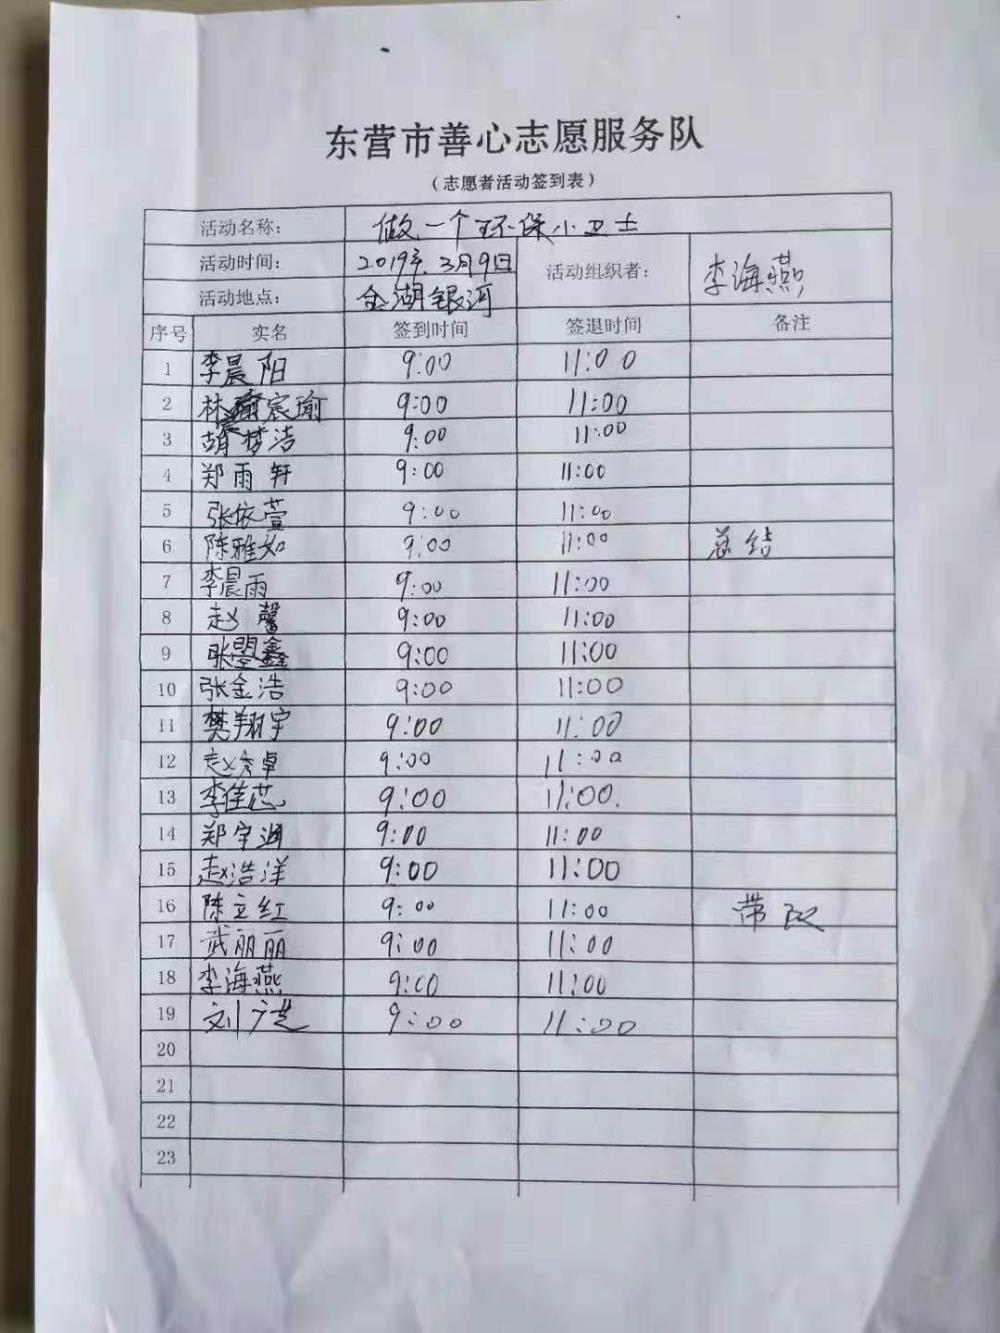 东营市善心志愿服务队
（志愿者活动签到表）
活动名称： 做一个环保小卫士
活动时间： 2019年.3月9日 活动组织者： 李海燕
活动地点： 金湖银河
序号 实名 签到时间 签退时间 备注
1 李晨阳 9:00 11:00
2 林宸瑜 9:00 11:00
3 胡梦洁 9:00 11:00
4 郑雨轩 9:00 11:00
5 张依萱 9:00 11:00
6 陈雅如 9:00 11:00 总结
7 李晨雨 9:00 11:00
8 赵馨 9:00 11:00
9 张曌鑫 9:00 11:00
10 张金浩 9:00 11:00
11 樊翔宇 9:00 11:00
12 赵彦卓 9:00 11:00
13 李佳芯 9:00 11:00.
14 郑宇涵 9:00 11:00
15 赵浩洋 9:00 11:00
16 陈立红 9:00 11:00 带队
17 武丽丽 9:00 11:00
18 李海燕 9:00 11:00
19 刘 9:00 11:00
20
21
22
23